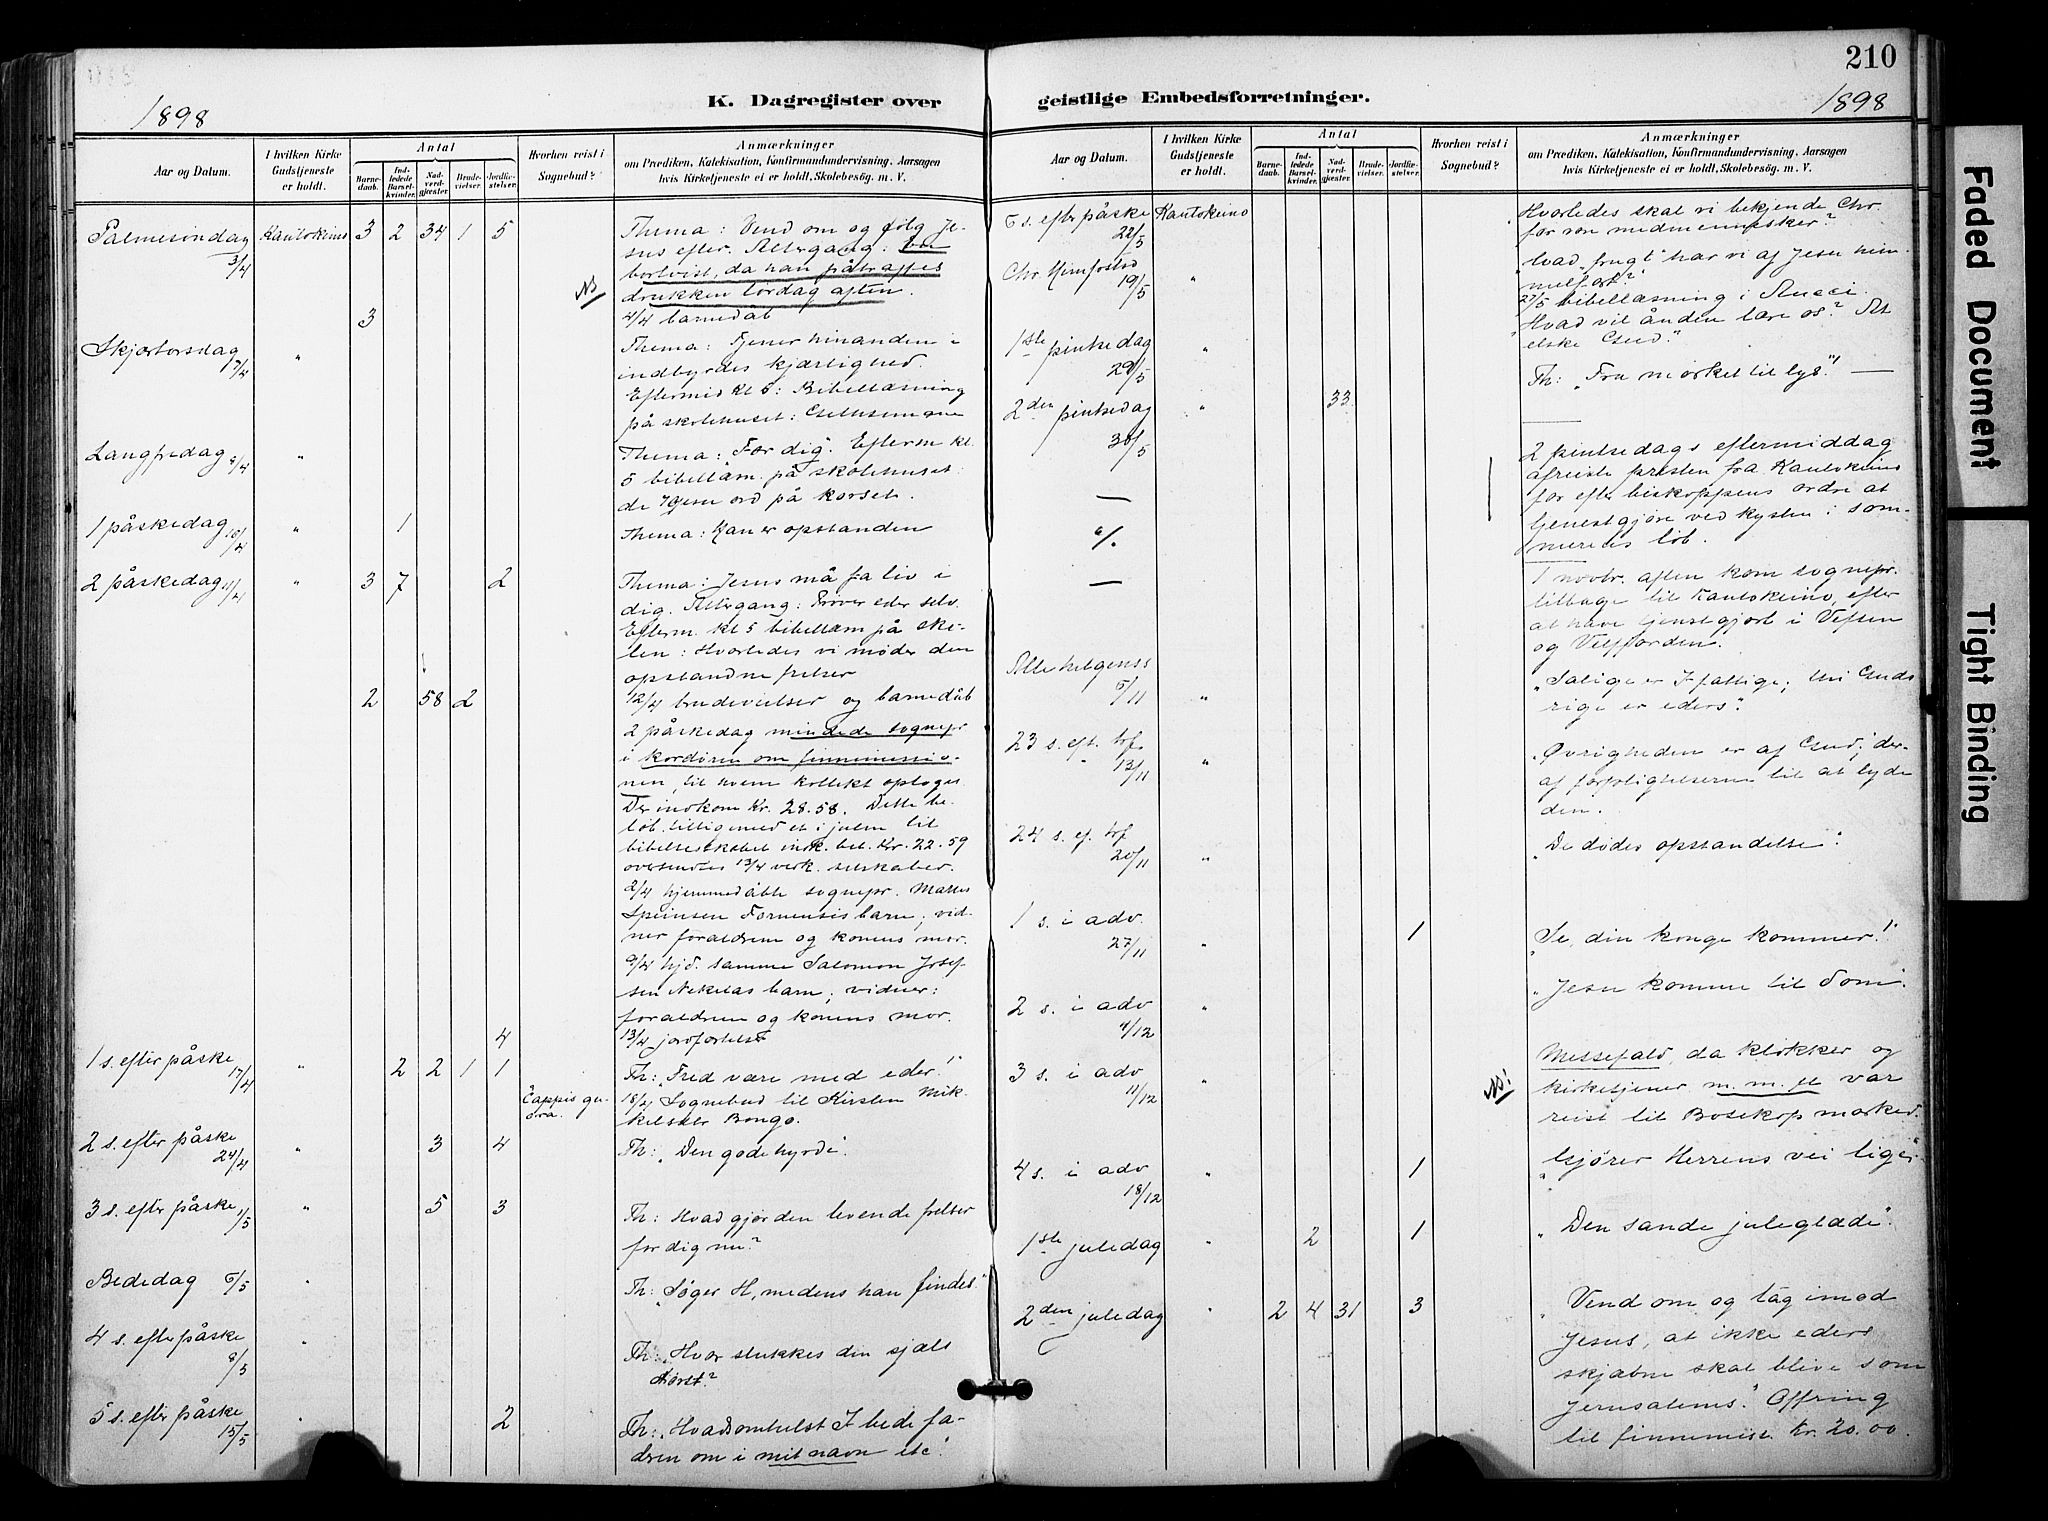 210
K. Dagregister over geistlige Embedsforretninger.
1898
1898
Aar og Datum.
I hvilken Kirke Gudstjeneste er holdt.
Antal
Barnedaab.
Indledede Barselkvinder.
Nadverdgjester.
Brudevielser.
Jordfæstelser.
Hvorhen reist i Sognebud?
Anmærkninger
om Prædiken, Katekisation, Konfirmandundervisning, Aarsagen
hvis Kirketjeneste ei er holdt, Skolebesøg. m. V.
Palmesöndag 3/4 Kautokeino 3 2 34 1 5
Thema: Vend om og følg Je-
sus efter. Altergang:
bortvist, da han påtraffes
NB drukken lørdag aften.
3 4/4 barnedåb
Skjærtorsdag 7/4 "
Thema: Tjener hinanden i
indbyrdes kjærlighed.
Eftermid kl 5: Bibellæsning
på skolehuset: Gethsemane
Langfredag 8/4 "
Thema: For dig. Efterm kl.
5 bibellæsn. på skolehuset:
de 7 Jesu ord på korset.
1 påskedag 10/4 " 1
Thema: Han er opstanden
2 påskedag 11/4 " 3 7 2
Thema: Jesus må få liv i
dig. Altergang: Prøver eder selv.
Efterm. kl 5 bibellæsn på sko-
len: Hvorledes vi møder den
opstandne frelser
2 58 2 12/4 brudevielser og barnedåb
2 påskedag mindede sognepr
i kordøren om finnemissio-
nen, til hvem kollekt optoges
Der indkom Kr. 28.58. Dette be-
løb tilligemed et i julen til
bibelselskabet indk. bel. Kr. 22.59
oversendtes 13/4 verk. selskaber.
2/4 hjemmedåbte sognepr. Mattis
barn; vid-
ner forældrene og konens mor.
9/4 hjd. samme Salomon Josef-
sen Nekelas barn; vidner:
forældrene og konens mor.
4 13/4 jordfæstelse
1 s. efter påske 17/4 " 2 2 1 1
Th: "Fred være med eder!"
18/4 Sognebud til Kirsten Mik-
kelsdtr Bongo.
2 s. efter påske 24/4 " 3 4
Th: "Den gode hyrde".
3 s. efter påske 1/5 " 5 3
Th: Hvad gjør den levende frelser
for dig nu?
Bededag 6/5 "
Th: "Søger H, medens han findes."
4 s. efter påske 8/5 "
Th: "Hvor slukkes din sjæls
tørst?"
5 s. efter påske 15/5 " 2
Th: "Hvadsomhelst I bede fa-
deren om i mit navn etc".
Aar og Datum.
I hvilken Kirke Gudstjeneste er holdt.
Antal
Barnedaab.
Indledede Barselkvinder.
Nadverdgjester.
Brudevielser.
Jordfæstelser.
Hvorhen reist i Sognebud?
Anmærkninger
om Prædiken, Katekisation, Konfirmandundervisning, Aarsagen
hvis Kirketjeneste ei er holdt, Skolebesøg. m. V.
6 s. efter påske 22/5 Kautokeino
"Hvorledes skal vi bekjende Chr
for vore medmennesker?
Chr Himfartsd 19/5 "
"Hvad "frugt" har vi af Jesu him-
melfart?"
27/5 bibellæsning i
1ste pintsedag 29/5 "
"Hvad vil ånden lære os? At
elske Gud."
2den pintsedag 30/5 " 33
Th: "Fra mørket til lys!" —
—
2 pintsedags eftermiddag
afreiste presten fra Kautokeino
for efter biskoppens ordre at
tjenestgjøre ved kysten i som-
merens løb.
%
—
1 novbr. aften kom sognepr.
tilbage til Kautokeino, efter
at have tjenstgjort i Vefsen
og Velfjorden.
Allehelgenss 6/11 "
"Salige er I fattige; thi Guds
rige er eders".
23 s. eft. trf. 13/11 "
"Øvrigheden er af Gud; der-
af forpligtelserne til at lyde
den".
24 s. ef. trf 20/11 "
"De dødes opstandelse".
1 s. i adv. 27/11 " 1
"Se, din konge kommer!"
2 s. i adv 4/12 "
"Jesu komme til dom".
3 s. i adv 11/12 "
NB!
Messefald, da klokker og
kirketjener m. m. fl var
reist til Bosekop marked.
4 s. i adv 18/12 " 1
"Gjører Herrens vei lige".
1ste juledag " 2 1
"Den sande juleglæde".
2den juledag " 2 4 31 3
"Vend om og tag imod
Jesus, at ikke eders
skjæbne skal blive som
Jerusalems." Offring
til finnemiss. Kr. 20.00.
Faded Document
Tight Binding